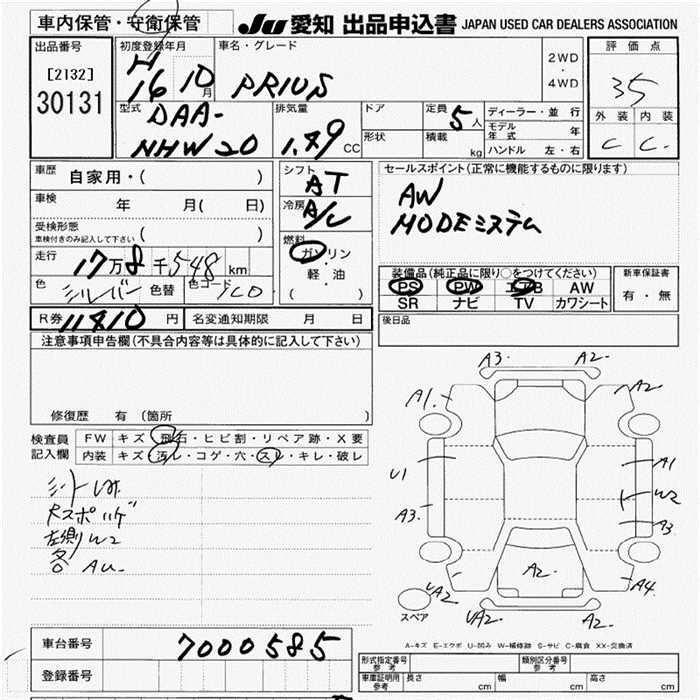 車内保管・安衛保管 JU 愛知 出品申込書 JAPAN USED CAR DEALERS ASSOCIATION
出品番号 [2132] 30131
初度登録年月 H 16 10 月
車名・グレード PRIUS
2WD ・ 4WD
評価点 35
外装 内装
C C
型式 DAA-NHW20
排気量 1.49 CC
ドア
形状
定員 5 人
積載 kg
ディーラー・並行
モデル年式 年
ハンドル 左・右
車歴 自家用・( )
車検 年 月( 日)
受検形態 車検付きのみ記入して下さい ( )
走行 17万8千548 km
色 シルバー 色替 色コード 1C0
シフト AT
冷房 A/C
燃料 ガソリン ・ 軽・油 ( )
セールスポイント(正常に機能するものに限ります)
AW
装備品(純正品に限り○をつけてください)
PS PW エアB AW
SR ナビ TV カワシート
新車保証書 有・無
R券 11410 円 名変通知期限 月 日
後日品
注意事項申告欄(不具合内容等は具体的に記入して下さい)
修復歴 有 (箇所 )
検査員記入欄
FW キズ・飛石・ヒビ割・リペア跡・X要
内装 キズ・汚レ・コゲ・穴・スレ・キレ・破レ
左側 W2
各 AU
A3. A2.
A1. A2
U1 A1
W2
A3. A3
A2.
UA2 A4.
UA2. A2.
スペア
A-キズ E-エクボ U-凹み W-補修跡 S-サビ C-腐食 XX-交換済
車台番号 7000585
登録番号
形式指定番号 参考 類別区分番号 参考
車庫証明用 参考 長さ cm 幅 cm 高さ cm